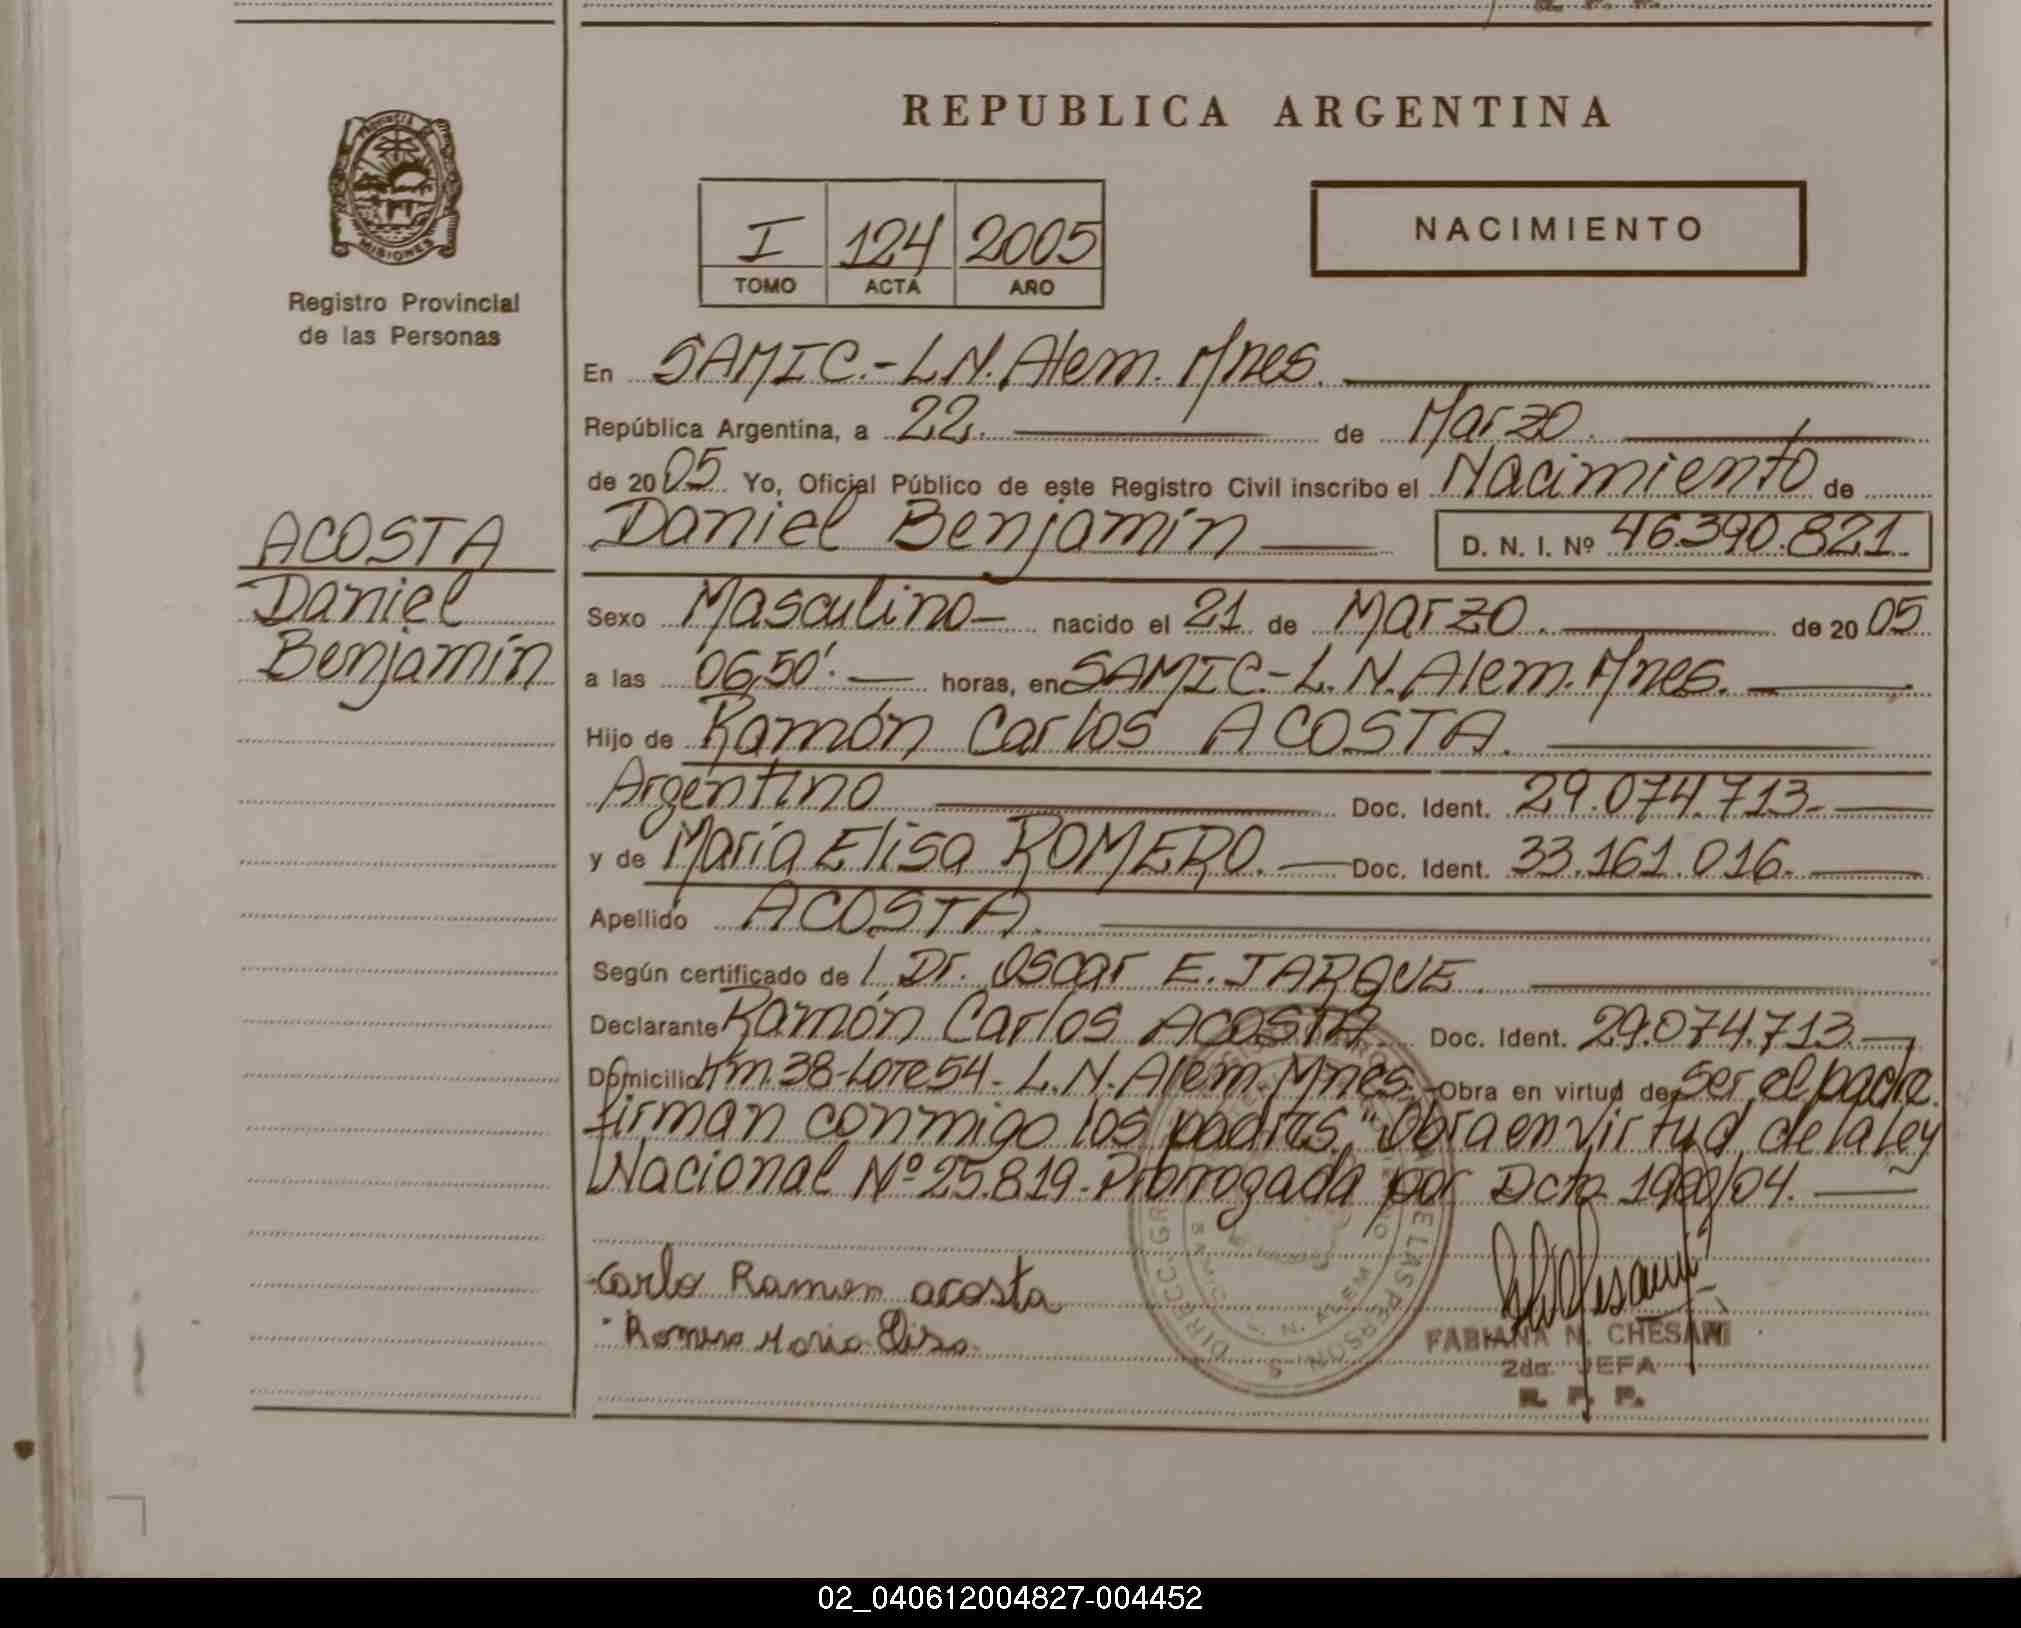 REPUBLICA ARGENTINA
PROVINCIA DE
MISIONES
Registro Provincial
de las Personas
I 124 2005
TOMO ACTA AÑO
NACIMIENTO
En SAMIC.-L.N.Alem. Mnes.
República Argentina, a 22. de Marzo.
de 2005 Yo, Oficial Público de este Registro Civil inscribo el Nacimiento de
Daniel Benjamín D. N. I. Nº 46.390.821.
ACOSTA
Daniel
Benjamín
Sexo Masculino- nacido el 21 de Marzo. de 2005
a las 06,50'. horas, en SAMIC.-L.N.Alem. Mnes.
Hijo de Ramón Carlos ACOSTA.
Argentino Doc. Ident. 29.074.713.
y de María Elisa ROMERO. Doc. Ident. 33.161.016.
Apellido ACOSTA.
Según certificado de / Dr. Oscar E. JARQUE.
Declarante Ramón Carlos ACOSTA. Doc. Ident. 29.074.713.
Domicilio Km.38-Lote 54- L.N.Alem Mnes.- Obra en virtud de Ser el padre.
firman conmigo los padres. "Obra en virtud de la ley
Nacional Nº 25.819-Prorrogada por Dcto
Carlo Ramon acosta
Romero Maria Elisa
FABIANA N. CHESANI
2da. JEFA
R. P. P.
02_040612004827-004452